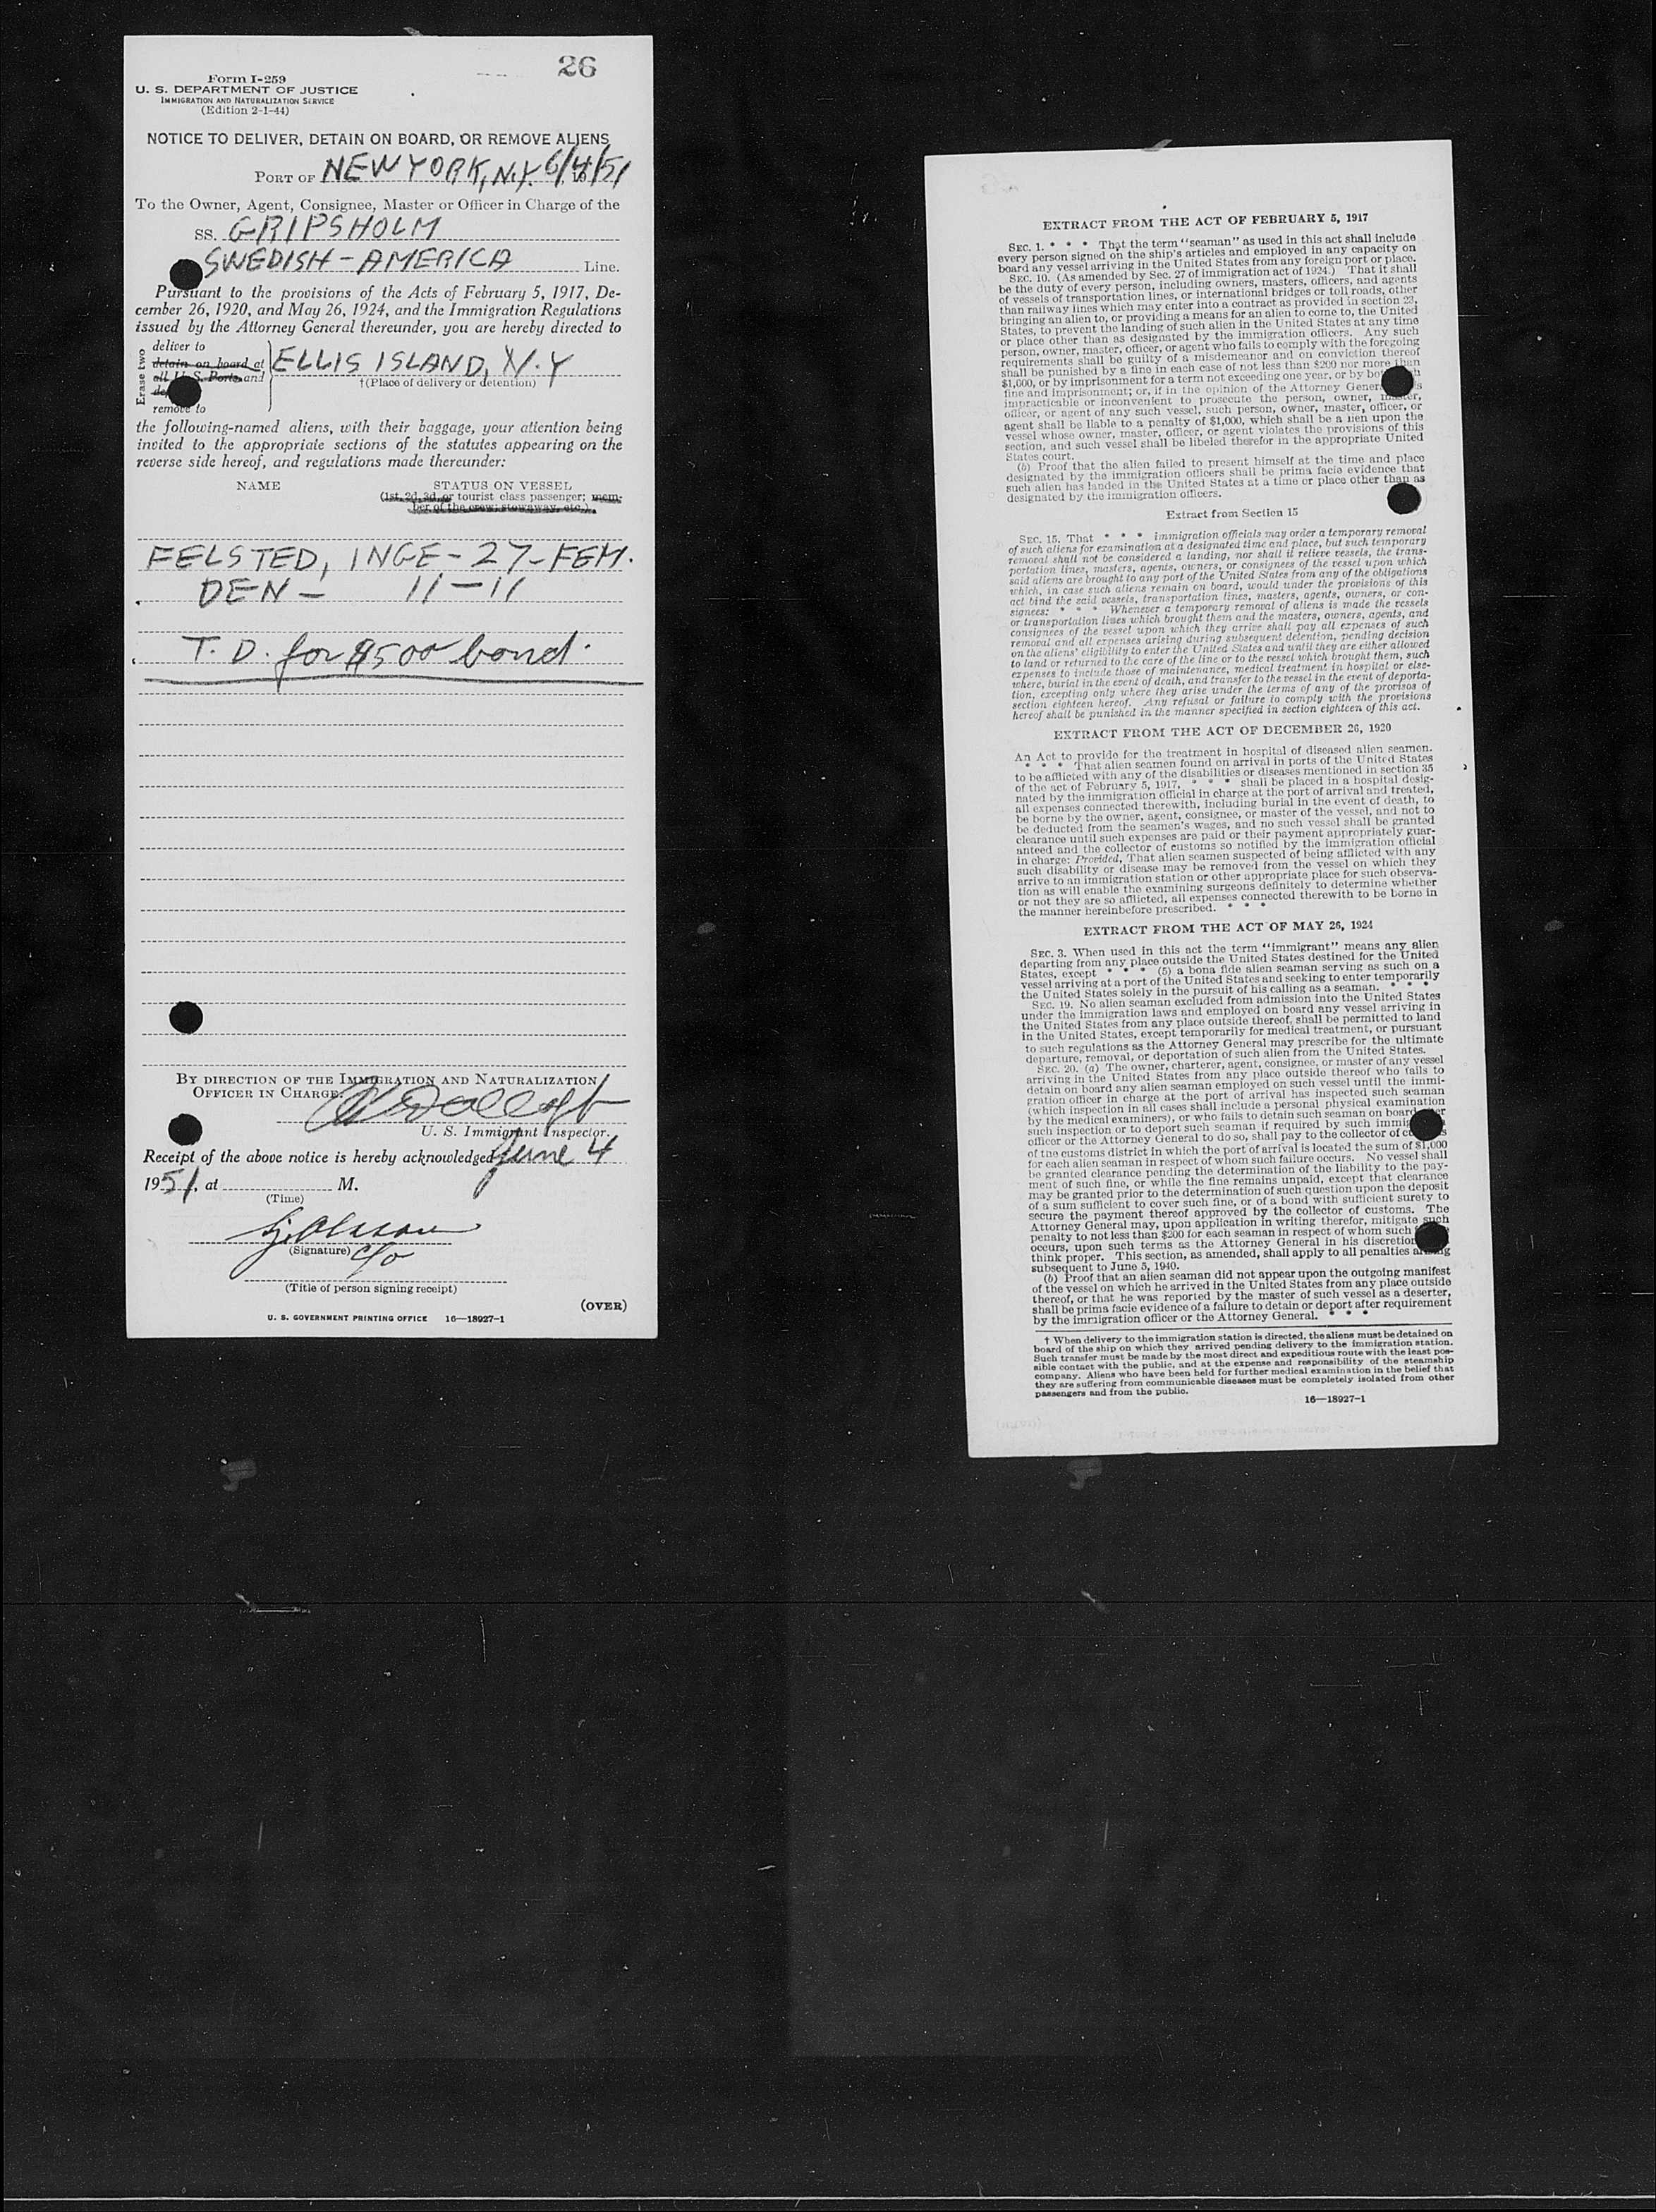 26
Form I-259
U. S. DEPARTMENT OF JUSTICE
IMMIGRATION AND NATURALIZATION SERVICE
(Edition 2-1-44)
NOTICE TO DELIVER, DETAIN ON BOARD, OR REMOVE ALIENS
PORT OF NEW YORK, N.Y. 6/4/51
To the Owner, Agent, Consignee, Master or Officer in Charge of the
SS. GRIPSHOLM
SWEDISH - AMERICA Line.
Pursuant to the provisions of the Acts of February 5, 1917, De-
cember 26, 1920, and May 26, 1924, and the Immigration Regulations
issued by the Attorney General thereunder, you are hereby directed to
Erase two
deliver to
detain on board at
all U. S. Ports and
remove to
ELLIS ISLAND, N.Y
†(Place of delivery or detention)
the following-named aliens, with their baggage, your attention being
invited to the appropriate sections of the statutes appearing on the
reverse side hereof, and regulations made thereunder:
NAME STATUS ON VESSEL
(1st, 2d, 3d, or tourist class passenger; mem-
ber of the crew; stowaway, etc.)
FELSTED, INGE - 27 - FEM.
DEN - 11 - 11
T. D. for $500 bond.
BY DIRECTION OF THE IMMIGRATION AND NATURALIZATION
OFFICER IN CHARGE.
U. S. Immigrant Inspector.
Receipt of the above notice is hereby acknowledged June 4
1951, at M.
(Time)
(Signature)
(Title of person signing receipt)
(OVER)
U. S. GOVERNMENT PRINTING OFFICE 16—18927-1
EXTRACT FROM THE ACT OF FEBRUARY 5, 1917
SEC. 1. * * * That the term "seaman" as used in this act shall include
every person signed on the ship's articles and employed in any capacity on
board any vessel arriving in the United States from any foreign port or place.
SEC. 10. (As amended by Sec. 27 of immigration act of 1924.) That it shall
be the duty of every person, including owners, masters, officers, and agents
of vessels of transportation lines, or international bridges or toll roads, other
than railway lines which may enter into a contract as provided in section 23,
bringing an alien to, or providing a means for an alien to come to, the United
States, to prevent the landing of such alien in the United States at any time
or place other than as designated by the immigration officers. Any such
person, owner, master, officer, or agent who fails to comply with the foregoing
requirements shall be guilty of a misdemeanor and on conviction thereof
shall be punished by a fine in each case of not less than $200 nor more than
$1,000, or by imprisonment for a term not exceeding one year, or by both such
fine and imprisonment; or, if in the opinion of the Attorney General it is
impracticable or inconvenient to prosecute the person, owner, master,
officer, or agent of any such vessel, such person, owner, master, officer, or
agent shall be liable to a penalty of $1,000, which shall be a lien upon the
vessel whose owner, master, officer, or agent violates the provisions of this
section, and such vessel shall be libeled therefor in the appropriate United
States court.
(b) Proof that the alien failed to present himself at the time and place
designated by the immigration officers shall be prima facie evidence that
such alien has landed in the United States at a time or place other than as
designated by the immigration officers.
Extract from Section 15
SEC. 15. That * * * immigration officials may order a temporary removal
of such aliens for examination at a designated time and place, but such temporary
removal shall not be considered a landing, nor shall it relieve vessels, the trans-
portation lines, masters, agents, owners, or consignees of the vessel upon which
said aliens are brought to any port of the United States from any of the obligations
which, in case such aliens remain on board, would under the provisions of this
act bind the said vessels, transportation lines, masters, agents, owners, or con-
signees: * * * Whenever a temporary removal of aliens is made the vessels
or transportation lines which brought them and the masters, owners, agents, and
consignees of the vessel upon which they arrive shall pay all expenses of such
removal and all expenses arising during subsequent detention, pending decision
on the aliens' eligibility to enter the United States and until they are either allowed
to land or returned to the care of the line or to the vessel which brought them, such
expenses to include those of maintenance, medical treatment in hospital or else-
where, burial in the event of death, and transfer to the vessel in the event of deporta-
tion, excepting only where they arise under the terms of any of the provisos of
section eighteen hereof. Any refusal or failure to comply with the provisions
hereof shall be punished in the manner specified in section eighteen of this act.
EXTRACT FROM THE ACT OF DECEMBER 26, 1920
An Act to provide for the treatment in hospital of diseased alien seamen.
* * * That alien seamen found on arrival in ports of the United States
to be afflicted with any of the disabilities or diseases mentioned in section 35
of the act of February 5, 1917, * * * shall be placed in a hospital desig-
nated by the immigration official in charge at the port of arrival and treated,
all expenses connected therewith, including burial in the event of death, to
be borne by the owner, agent, consignee, or master of the vessel, and not to
be deducted from the seamen's wages, and no such vessel shall be granted
clearance until such expenses are paid or their payment appropriately guar-
anteed and the collector of customs so notified by the immigration official
in charge: Provided, That alien seamen suspected of being afflicted with any
such disability or disease may be removed from the vessel on which they
arrive to an immigration station or other appropriate place for such observa-
tion as will enable the examining surgeons definitely to determine whether
or not they are so afflicted, all expenses connected therewith to be borne in
the manner hereinbefore prescribed. * * *
EXTRACT FROM THE ACT OF MAY 26, 1924
SEC. 3. When used in this act the term "immigrant" means any alien
departing from any place outside the United States destined for the United
States, except * * * (5) a bona fide alien seaman serving as such on a
vessel arriving at a port of the United States and seeking to enter temporarily
the United States solely in the pursuit of his calling as a seaman. * * *
SEC. 19. No alien seaman excluded from admission into the United States
under the immigration laws and employed on board any vessel arriving in
the United States from any place outside thereof, shall be permitted to land
in the United States, except temporarily for medical treatment, or pursuant
to such regulations as the Attorney General may prescribe for the ultimate
departure, removal, or deportation of such alien from the United States.
SEC. 20. (a) The owner, charterer, agent, consignee, or master of any vessel
arriving in the United States from any place outside thereof who fails to
detain on board any alien seaman employed on such vessel until the immi-
gration officer in charge at the port of arrival has inspected such seaman
(which inspection in all cases shall include a personal physical examination
by the medical examiners), or who fails to detain such seaman on board after
such inspection or to deport such seaman if required by such immigration
officer or the Attorney General to do so, shall pay to the collector of customs
of the customs district in which the port of arrival is located the sum of $1,000
for each alien seaman in respect of whom such failure occurs. No vessel shall
be granted clearance pending the determination of the liability to the pay-
ment of such fine, or while the fine remains unpaid, except that clearance
may be granted prior to the determination of such question upon the deposit
of a sum sufficient to cover such fine, or of a bond with sufficient surety to
secure the payment thereof approved by the collector of customs. The
Attorney General may, upon application in writing therefor, mitigate such
penalty to not less than $200 for each seaman in respect of whom such
occurs, upon such terms as the Attorney General in his discretion
think proper. This section, as amended, shall apply to all penalties arising
subsequent to June 5, 1940.
(b) Proof that an alien seaman did not appear upon the outgoing manifest
of the vessel on which he arrived in the United States from any place outside
thereof, or that he was reported by the master of such vessel as a deserter,
shall be prima facie evidence of a failure to detain or deport after requirement
by the immigration officer or the Attorney General. * * *
† When delivery to the immigration station is directed, the aliens must be detained on
board of the ship on which they arrived pending delivery to the immigration station.
Such transfer must be made by the most direct and expeditious route with the least pos-
sible contact with the public, and at the expense and responsibility of the steamship
company. Aliens who have been held for further medical examination in the belief that
they are suffering from communicable diseases must be completely isolated from other
passengers and from the public.
16—18927-1